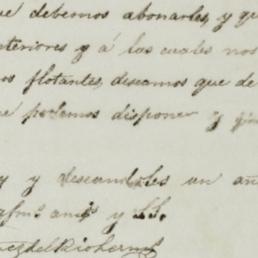 ue debemos abonarles, y qu
nteriores y á las cuales nos
os flotantes, deseamos que de
ue podamos disponer y
y y deseandoles un añ
afms. ams y SS.
ez del Rio herms